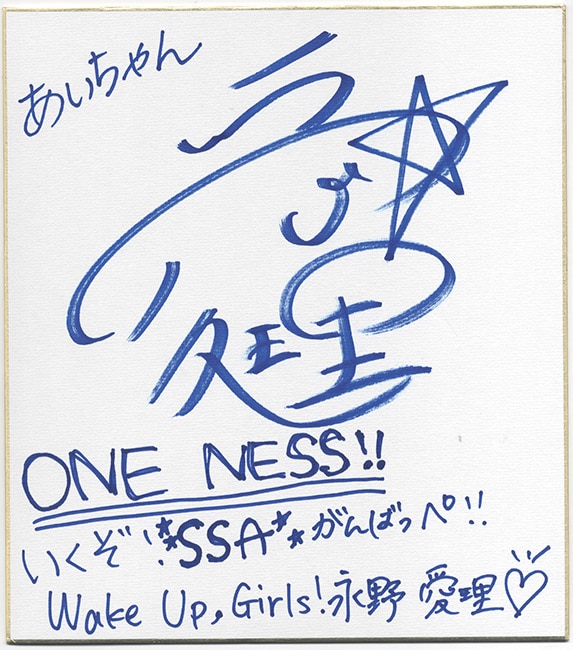 あいちゃん
愛理
ONE NESS!!
いくぞ!SSAがんばっぺ!!
Wake Up, Girls!永野 愛理♡